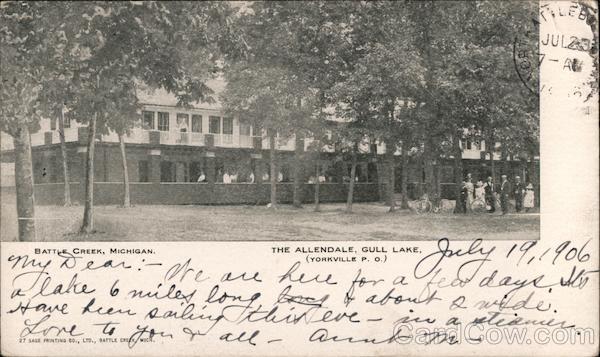 BATTLE
JUL 23
7-AM
BATTLE CREEK, MICHIGAN.
THE ALLENDALE, GULL LAKE,
(YORKVILLE P. O.)
July 19, 1906
My Dear:- We are here for a few days. It's
a lake 6 miles long long & about 2 wide.
Have been sailing this eve - in a steamer.
Love to you & all - Aunt M-
27 SAGE PRINTING CO., LTD., BATTLE CREEK, MICH.
CardCow.com